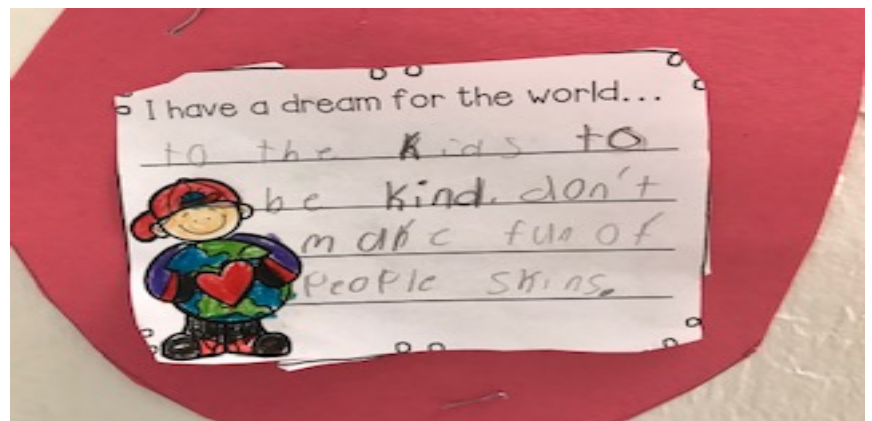 I have a dream for the world...
to the Kids to
be kind. don't
make fun of
People skins.